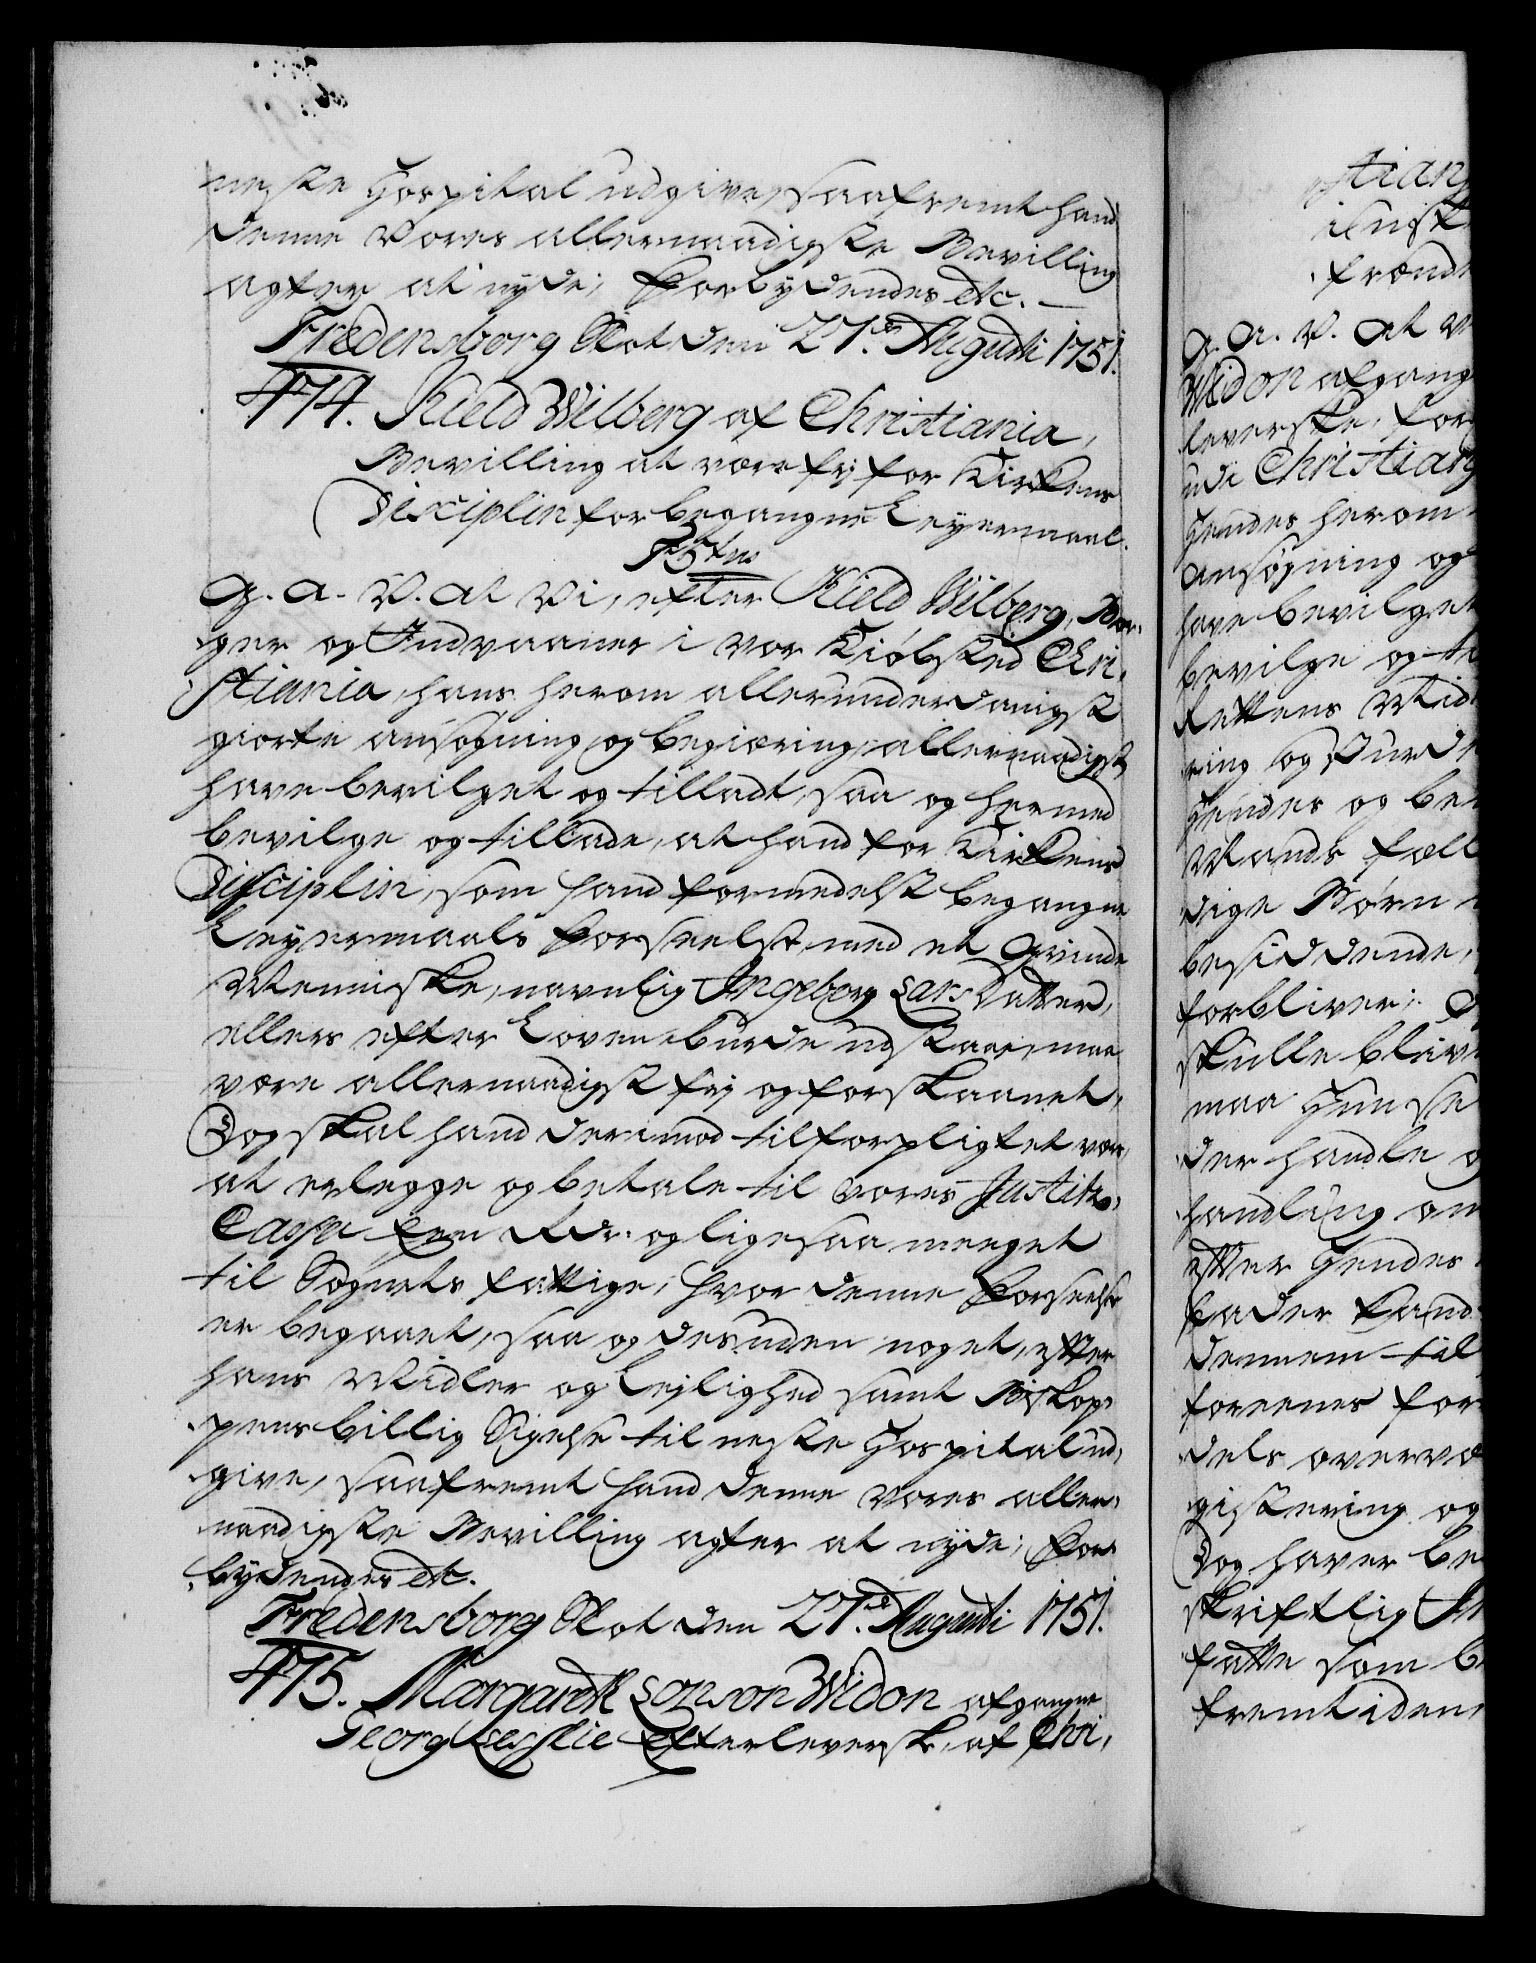 neste Hospital udgive, saafremt hand
denne Vores allernaadigste Bevilling
agter at nyde; Forbydendes etc.
Fredensborg Slot den 27de Augusti 1751.
474. Kield Wilberg af Christiania,
Bevilling at være frj for Kirkens
Disciplin for begangne Leyermaal.
F5ten
G. A. V. at Vi, efter Kield Wilberg, Bor-
ger og Indvaaner i vor Kiøbsted Chri-
stiania, hans herom allerunderdanigst
giorte ansøgning og begiæring, allernaadigst
have bevilget og tilladt, saa og hermed
bevilge og tillade, at hand for Kirkens
Disciplin, som hand formedelst begangne
Leyermaals Forseelse, med et Qvinde
Menniske, navnlig Ingeborg LarsDatter,
ellers efter Loven burde udstaae, maa
være allernaadigst frj og forskaanet,
Dog skal hand derimod tilforpligtet være,
at erlegge og betale til vores Justitz-
Cassa Fem Rdr. og ligesaa meeget
til Sognets fattige, hvor denne Forseelse
er begaaet, saa og desuden noget, efter
hans Midler og Lejlighed samt Biskop-
pens billig Sigelse til neste Hospital ud-
give, saafremt hand denne vores aller-
naadigste Bevilling agter at nyde; For-
bydendes etc.
Fredensborg Slot den 27de Augusti 1751.
475. Margareth Sonson Widon afgangne
Georg Lesslie Efterleverske, af Chri-
stian
G. A. V. at V
Widon afgang
leverske, for
udi Christian
Hendes herom
ansøgning og
have bevilget
bevilge og ti
Rettens Mid
ring og Vurde
Hendes og be
Mands fæll
dige Børn
besiddende,
forbliver;
skulle blive
maa Hun se
der handle o
handling om
efter Hendes
bader Kand
dennem til
foreenes for
dels overvæ
gistering og
Dog haver be
skriftlig In
fatte som b
fremtiden